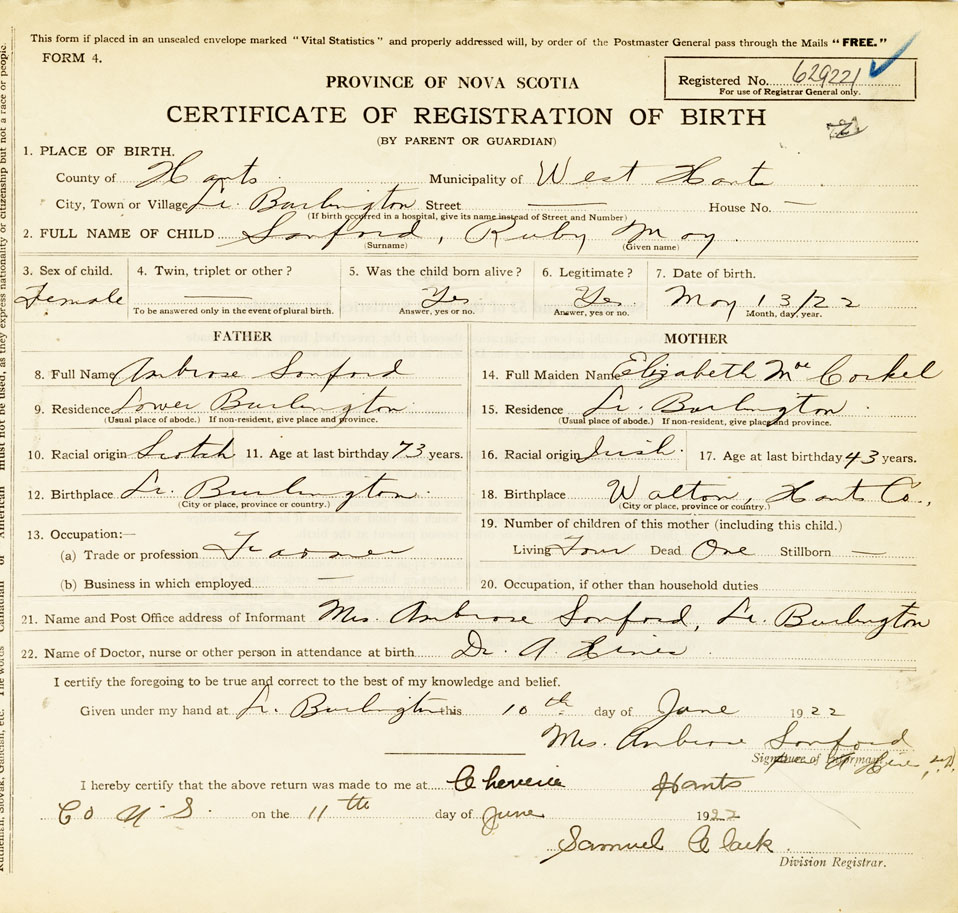 This form if placed in an unsealed envelope marked "Vital Statistics" and properly addressed will, by order of the Postmaster General pass through the Mails "FREE."
FORM 4.
Registered No. 629221
For use of Registrar General only.
PROVINCE OF NOVA SCOTIA
CERTIFICATE OF REGISTRATION OF BIRTH
(BY PARENT OR GUARDIAN)
1. PLACE OF BIRTH.
County of Hants Municipality of West Hants
City, Town or Village Lr. Burlington Street — House No. —
(If birth occurred in a hospital, give its name instead of Street and Number)
2. FULL NAME OF CHILD Sanford, Ruby May
(Surname) (Given name)
3. Sex of child. 4. Twin, triplet or other? 5. Was the child born alive? 6. Legitimate? 7. Date of birth.
Female — Yes Yes. May 13/22
To be answered only in the event of plural birth. Answer, yes or no. Answer, yes or no. Month, day, year.
FATHER MOTHER
8. Full Name Ambrose Sanford 14. Full Maiden Name Elizabeth Mac Corkel
9. Residence Lower Burlington 15. Residence Lr. Burlington
(Usual place of abode.) If non-resident, give place and province. (Usual place of abode.) If non-resident, give place and province.
10. Racial origin Scotch 11. Age at last birthday 73 years. 16. Racial origin Irish. 17. Age at last birthday 43 years.
12. Birthplace Lr. Burlington 18. Birthplace Walton, Hants Co.,
(City or place, province or country.) (City or place, province or country.)
13. Occupation:— 19. Number of children of this mother (including this child.)
(a) Trade or profession Farmer Living Four Dead One Stillborn —
(b) Business in which employed — 20. Occupation, if other than household duties
21. Name and Post Office address of Informant Mrs. Ambrose Sanford, Lr. Burlington
22. Name of Doctor, nurse or other person in attendance at birth. Dr. A Hines
I certify the foregoing to be true and correct to the best of my knowledge and belief.
Given under my hand at Lr. Burlington this 10th day of June 1922
Mrs. Ambrose Sanford
Signature of Informant
I hereby certify that the above return was made to me at Cheverie Hants
Co N S. on the 11th day of June 1922
Samuel Clark
Division Registrar.
must not be used, as they express nationality or citizenship but not a race or people.
Ruthenian, Slovak, Galician, etc. The words Canadian or American